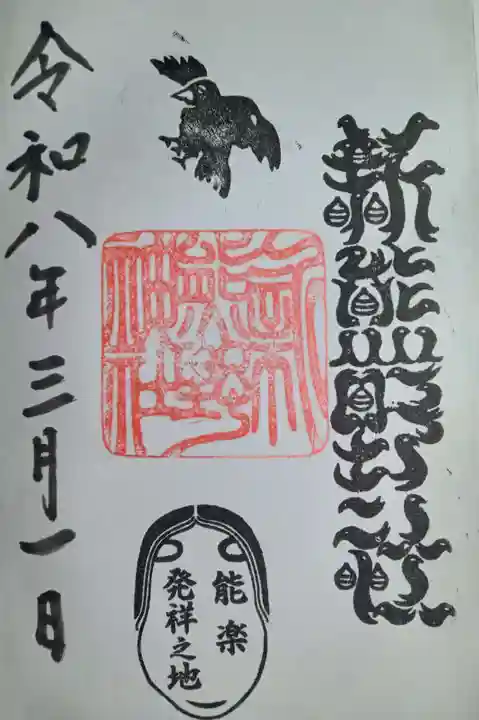 新熊野
能楽
発祥之地
令和八年三月一日